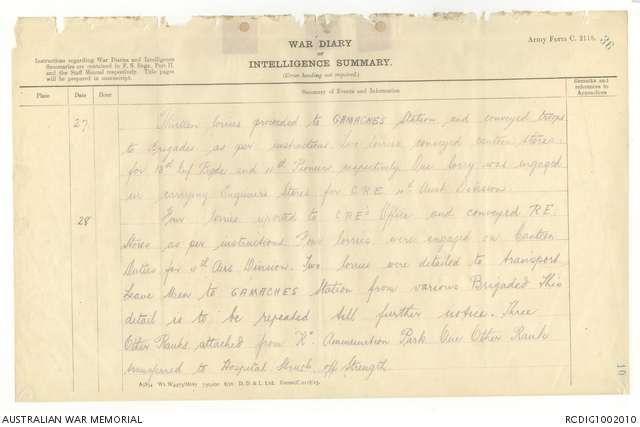 Army Form C. 2118.
36
WAR DIARY
or
INTELLIGENCE SUMMARY.
(Erase heading not required.)
Instructions regarding War Diaries and Intelligence
Summaries are contained in F. S. Regs., Part II.
and the Staff Manual respectively. Title pages
will be prepared in manuscript.
Place Date Hour Summary of Events and Information Remarks and references to Appendices
27 lorries proceeded to GAMACHES Station and conveyed troops
to Brigades as per instructions. Two lorries conveyed canteen stores
for Inf Bgde and 4th Pioneer respectively One lorry was engaged
in carrying Engineers Stores for C.R.E 4th Aust Division
28 Four lorries reported to CRE's Office and conveyed RE
Stores as per instructions. Four lorries were engaged on Canteen
Duties for 4th Aus. Division. Two lorries were detailed to transport
Leave Men to GAMACHES Station from various Brigades This
detail is to be repeated till further notice. Three
Other Ranks attached from "K" Ammunition Park One Other Rank
transferred to Hospital Struck off Strength
D. D. & L. Ltd.
10
AUSTRALIAN WAR MEMORIAL
RCDIG1002010